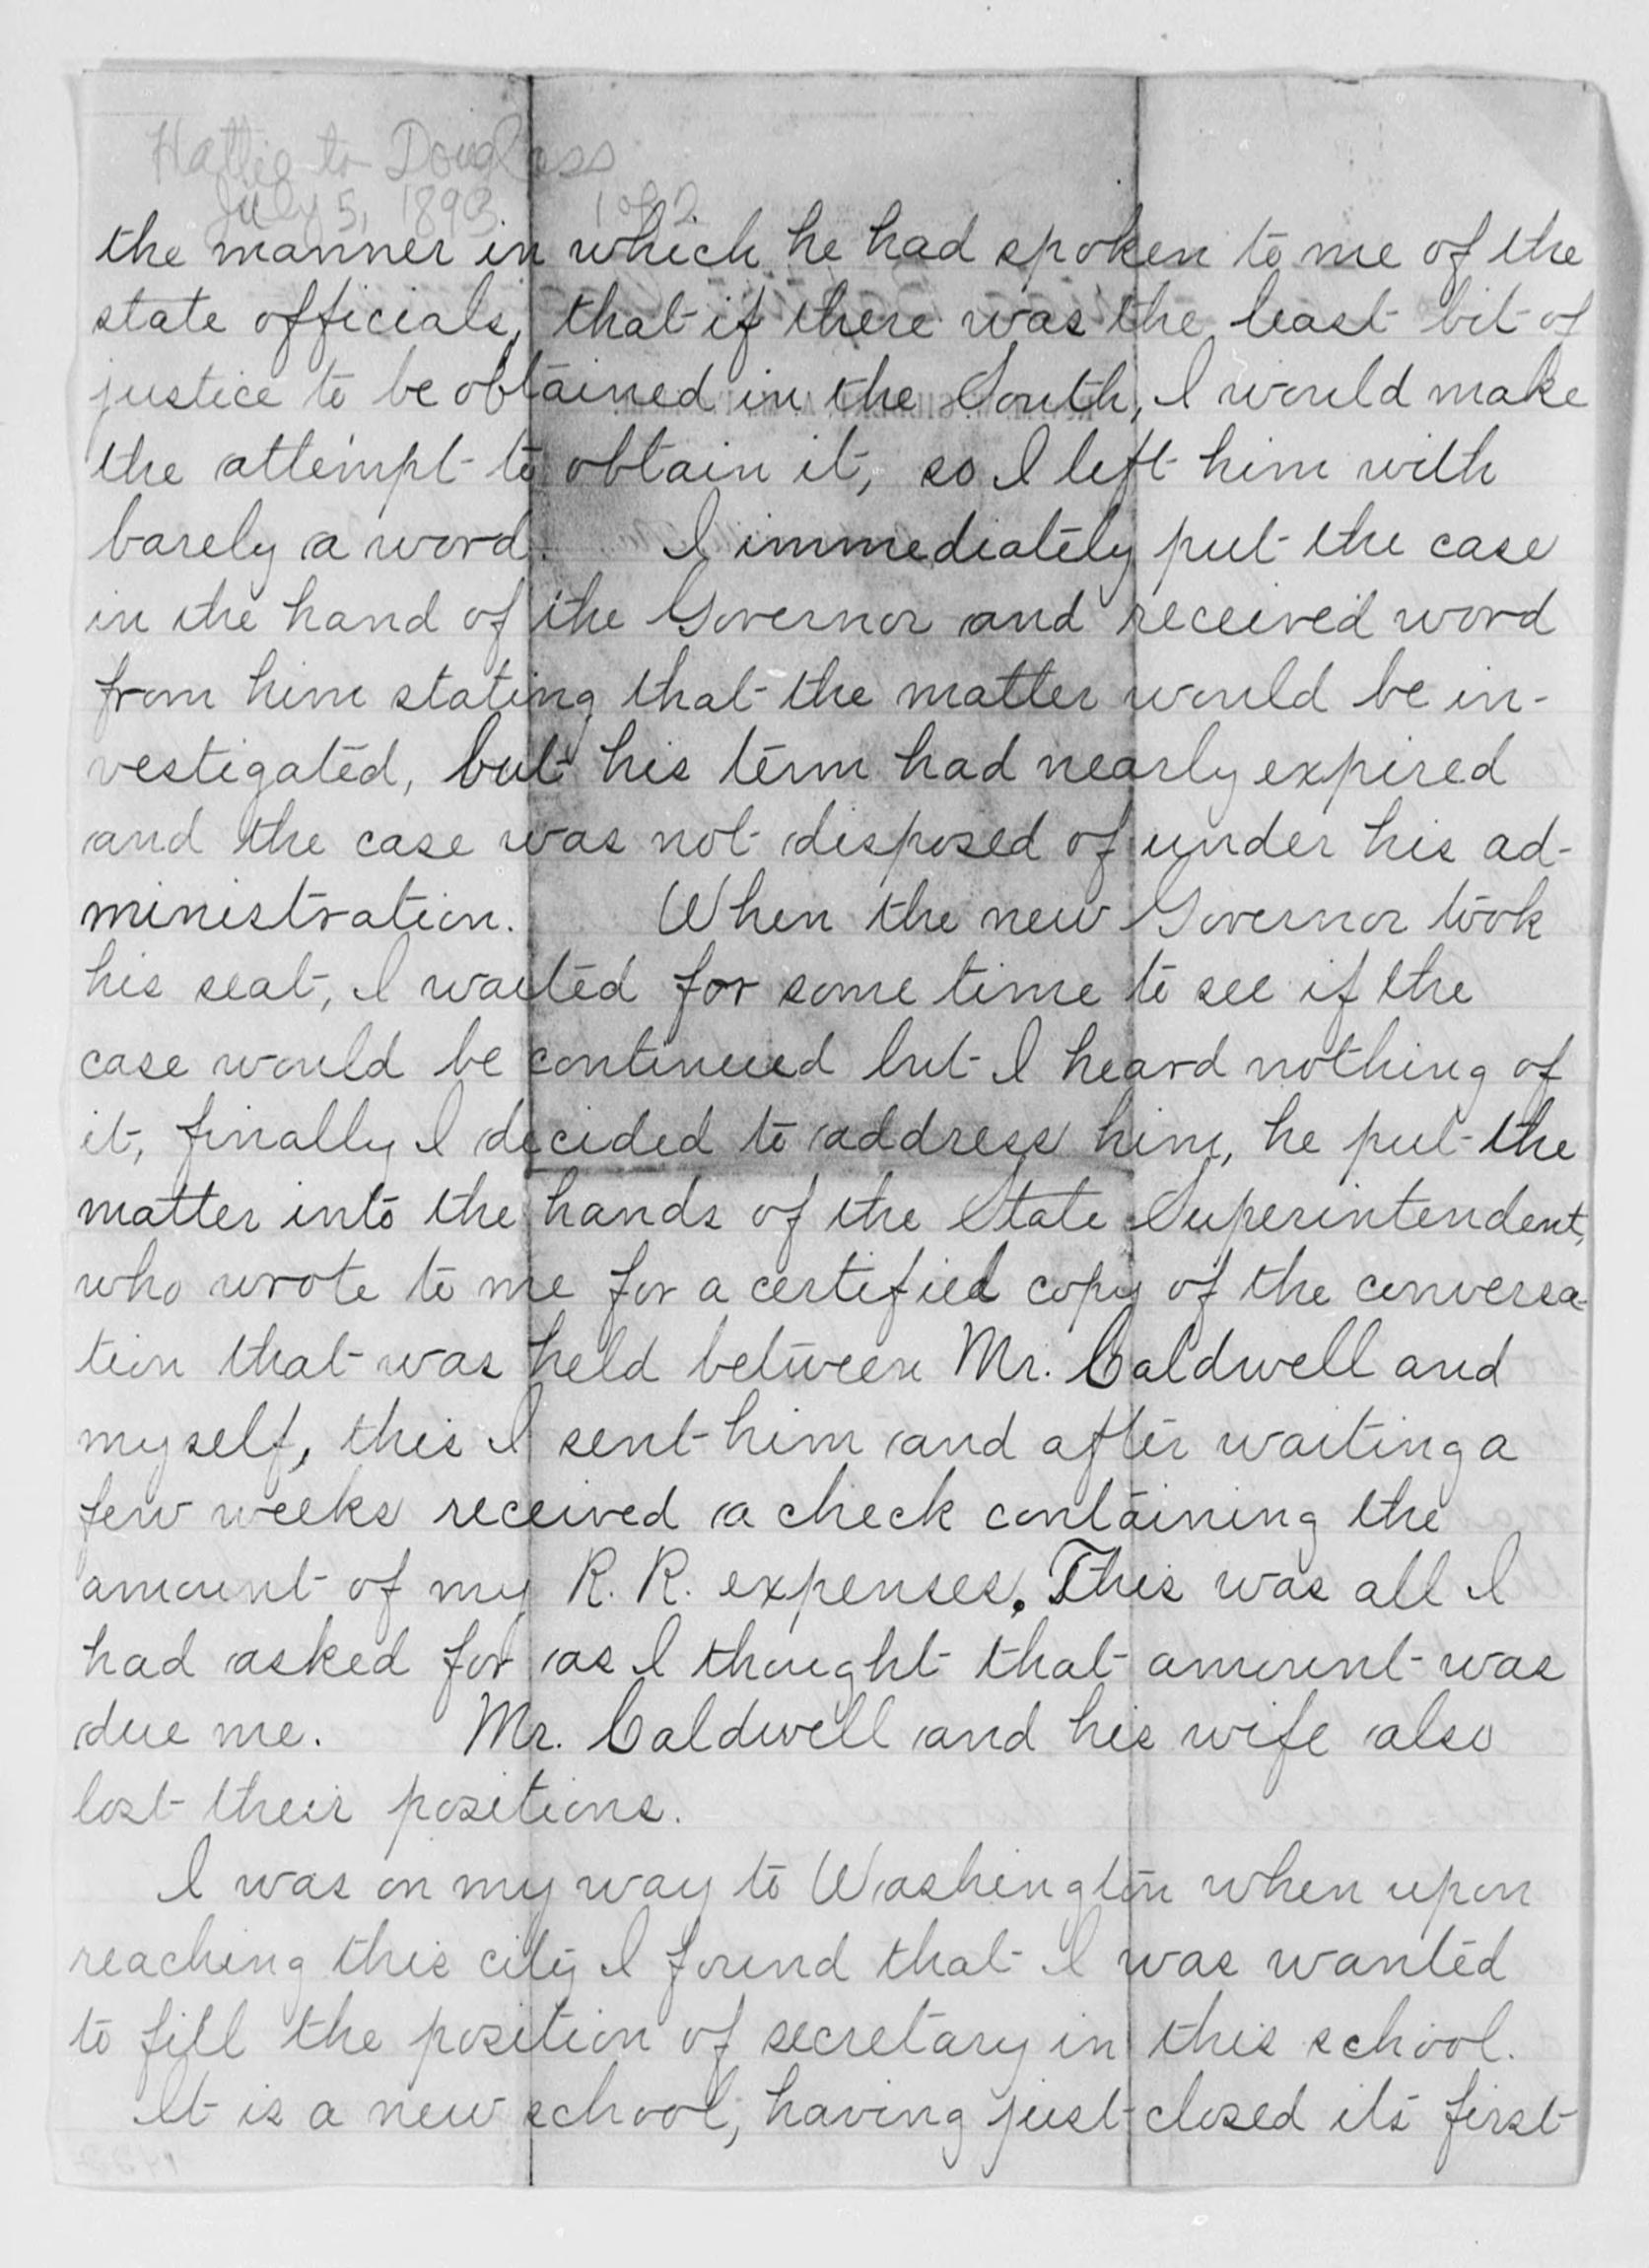 Hattie to Douglass
July 5, 1893 1 of 2
the manner in which he had spoken to me of the
state officials, that if there was the least bit of
justice to be obtained in the South, I would make
the attempt to obtain it, so I left him with
barely a word. I immediately put the case
in the hand of the Governor and received word
from him stating that the matter would be in-
vestigated, but his term had nearly expired
and the case was not disposed of under his ad-
ministration. When the new Governor took
his seat, I waited for some time to see if the
case would be continued but I heard nothing of
it, finally I decided to address him, he put the
matter into the hands of the State Superintendent,
who wrote to me for a certified copy of the conversa-
tion that was held between Mr. Caldwell and
myself, this I sent him and after waiting a
few weeks received a check containing the
amount of my R. R. expenses. This was all I
had asked for as I thought that amount was
due me. Mr. Caldwell and his wife also
lost their positions.
I was on my way to Washington when upon
reaching this city I found that I was wanted
to fill the position of secretary in this school.
It is a new school, having just closed its first